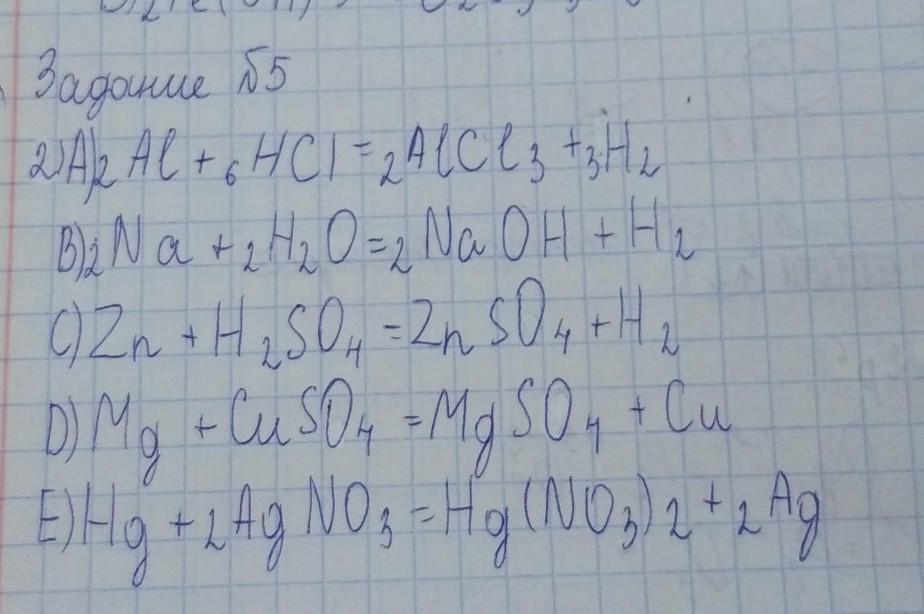 Задание №5
2) A) 2Al + 6HCl = 2AlCl3 + 3H2
B) 2Na + 2H2O = 2NaOH + H2
C) Zn + H2SO4 = ZnSO4 + H2
D) Mg + CuSO4 = MgSO4 + Cu
E) Hg + 2AgNO3 = Hg(NO3)2 + 2Ag